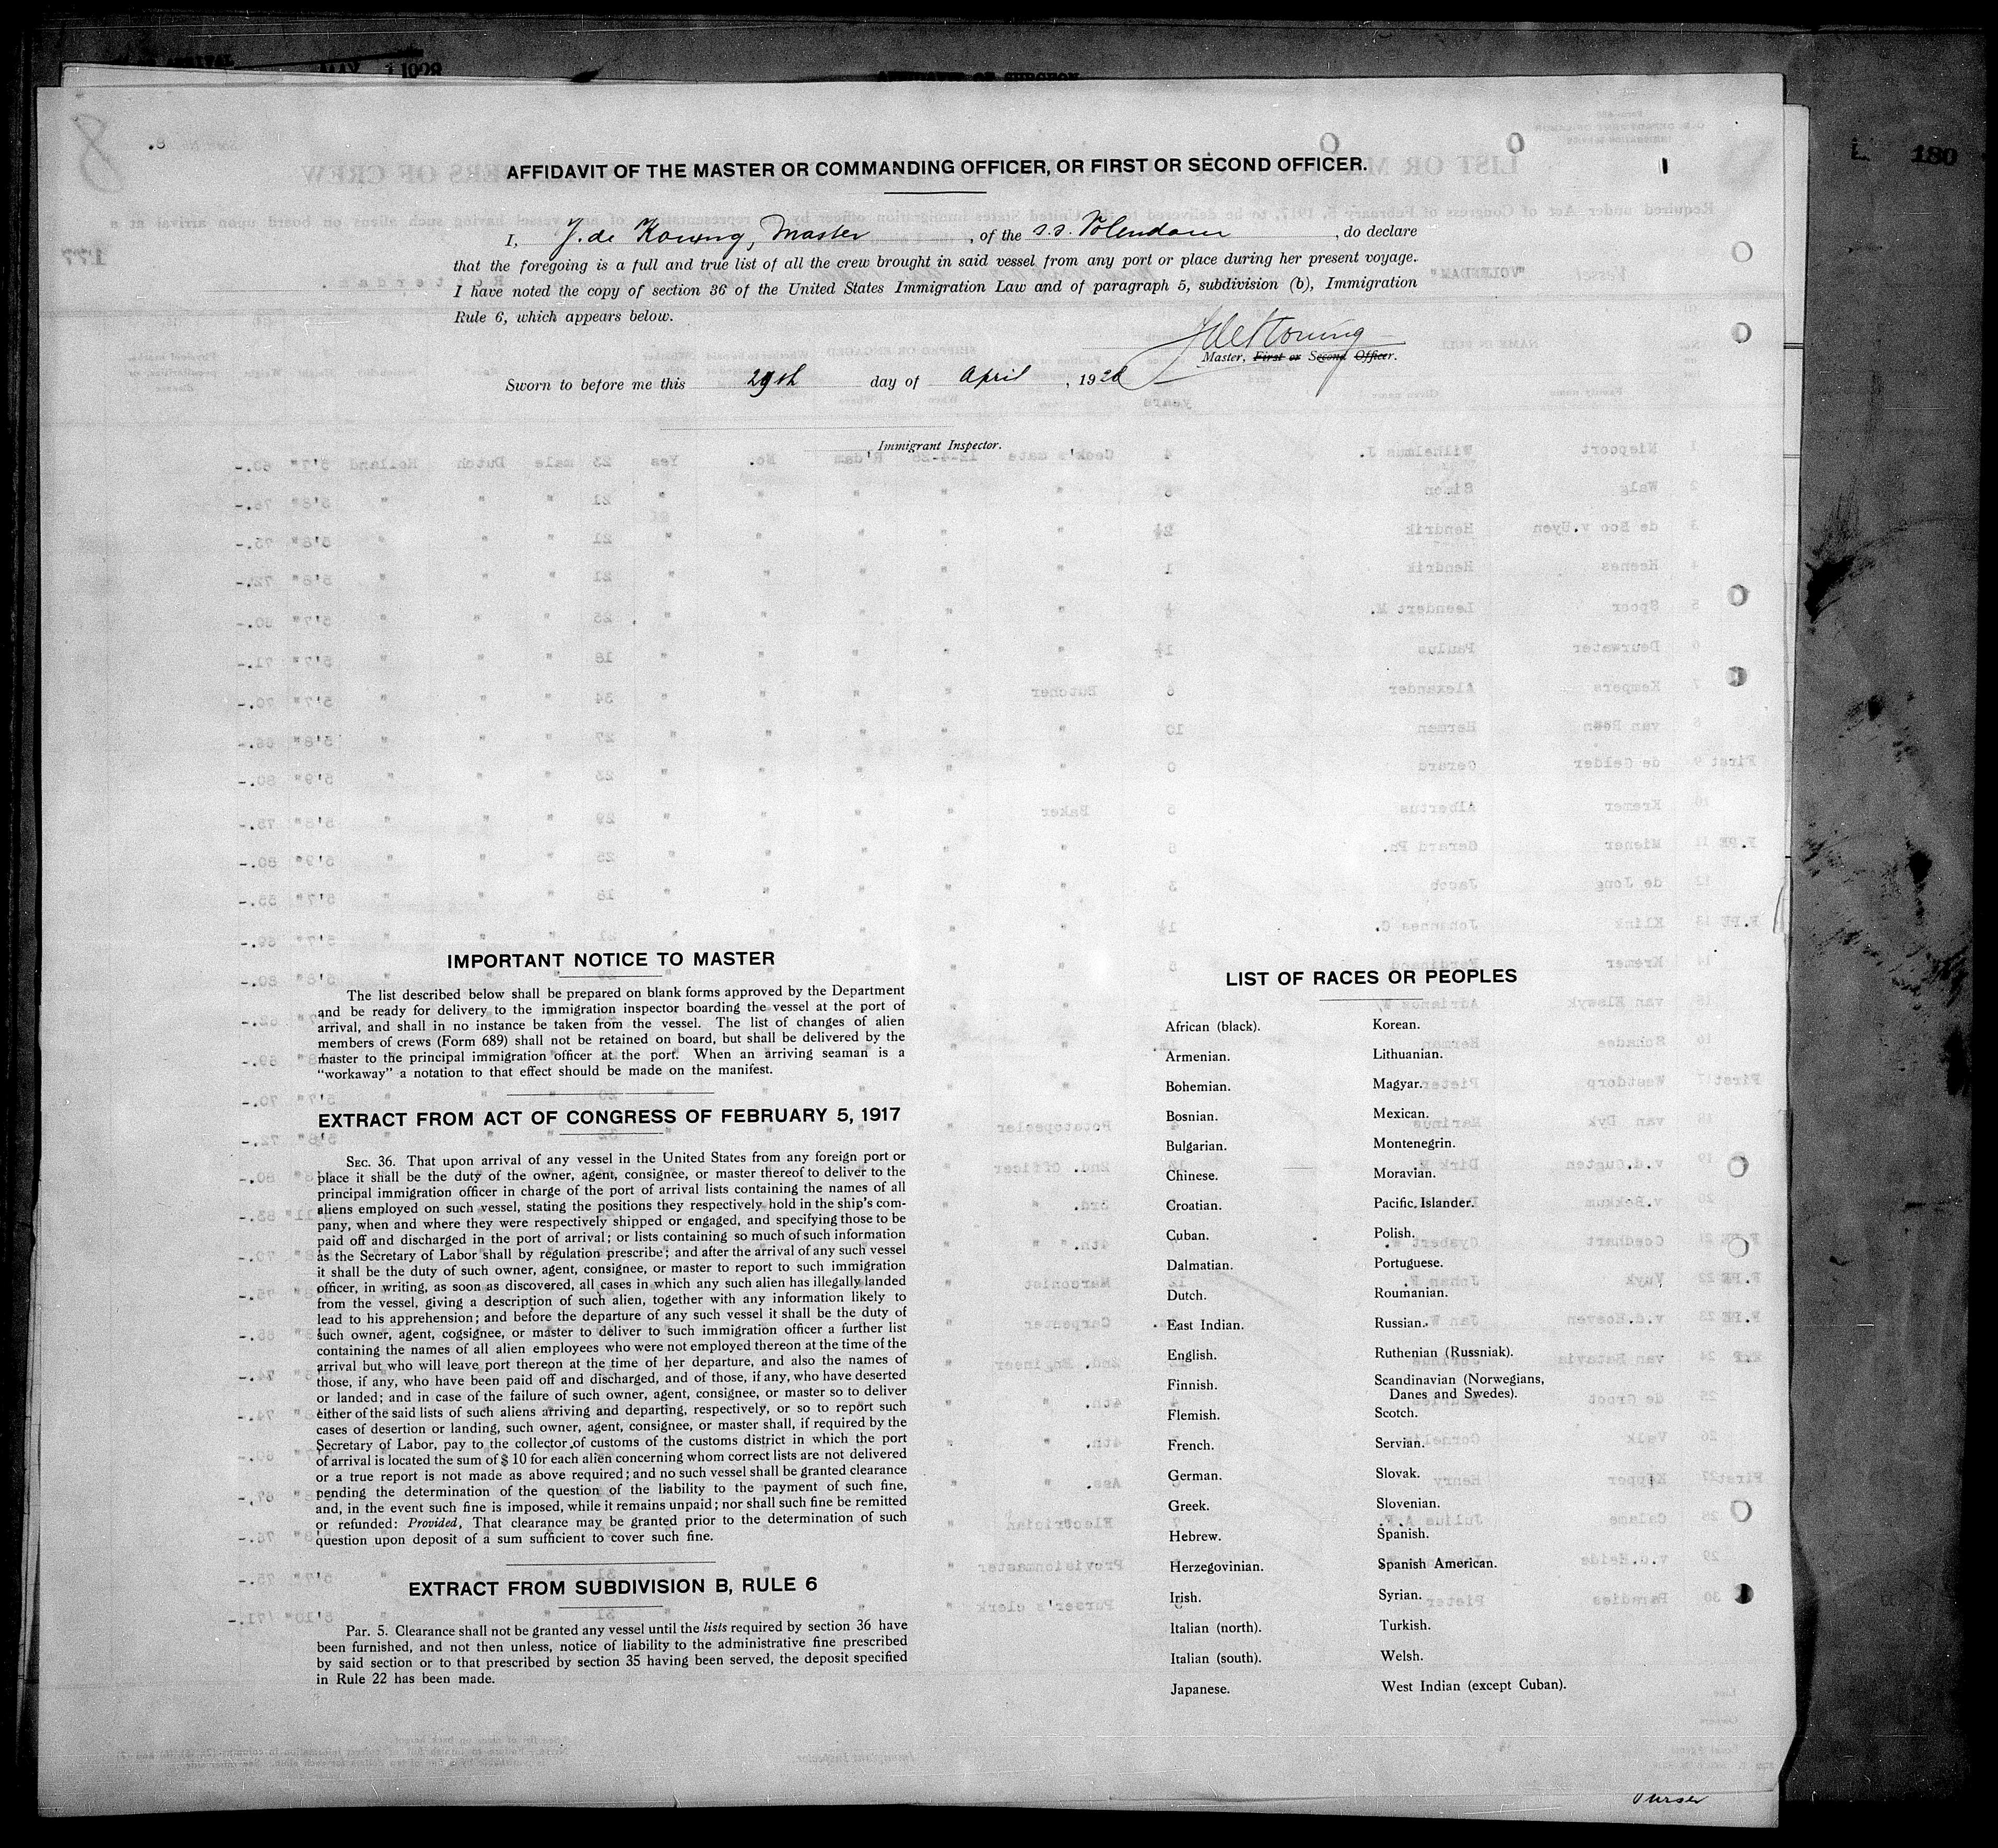 AFFIDAVIT OF THE MASTER OR COMMANDING OFFICER, OR FIRST OR SECOND OFFICER.
I, J. de Koning, Master, of the s.s. Volendam, do declare
that the foregoing is a full and true list of all the crew brought in said vessel from any port or place during her present voyage.
I have noted the copy of section 36 of the United States Immigration Law and of paragraph 5, subdivision (b), Immigration
Rule 6, which appears below.
JdeKoning
Master, First or Second Officer.
Sworn to before me this 29th day of April, 192
Immigrant Inspector.
IMPORTANT NOTICE TO MASTER
The list described below shall be prepared on blank forms approved by the Department
and be ready for delivery to the immigration inspector boarding the vessel at the port of
arrival, and shall in no instance be taken from the vessel. The list of changes of alien
members of crews (Form 689) shall not be retained on board, but shall be delivered by the
master to the principal immigration officer at the port. When an arriving seaman is a
“workaway” a notation to that effect should be made on the manifest.
EXTRACT FROM ACT OF CONGRESS OF FEBRUARY 5, 1917
SEC. 36. That upon arrival of any vessel in the United States from any foreign port or
place it shall be the duty of the owner, agent, consignee, or master thereof to deliver to the
principal immigration officer in charge of the port of arrival lists containing the names of all
aliens employed on such vessel, stating the positions they respectively hold in the ship's com-
pany, when and where they were respectively shipped or engaged, and specifying those to be
paid off and discharged in the port of arrival; or lists containing so much of such information
as the Secretary of Labor shall by regulation prescribe; and after the arrival of any such vessel
it shall be the duty of such owner, agent, consignee, or master to report to such immigration
officer, in writing, as soon as discovered, all cases in which any such alien has illegally landed
from the vessel, giving a description of such alien, together with any information likely to
lead to his apprehension; and before the departure of any such vessel it shall be the duty of
such owner, agent, cogsignee, or master to deliver to such immigration officer a further list
containing the names of all alien employees who were not employed thereon at the time of the
arrival but who will leave port thereon at the time of her departure, and also the names of
those, if any, who have been paid off and discharged, and of those, if any, who have deserted
or landed; and in case of the failure of such owner, agent, consignee, or master so to deliver
either of the said lists of such aliens arriving and departing, respectively, or so to report such
cases of desertion or landing, such owner, agent, consignee, or master shall, if required by the
Secretary of Labor, pay to the collector of customs of the customs district in which the port
of arrival is located the sum of $ 10 for each alien concerning whom correct lists are not delivered
or a true report is not made as above required; and no such vessel shall be granted clearance
pending the determination of the question of the liability to the payment of such fine,
and, in the event such fine is imposed, while it remains unpaid; nor shall such fine be remitted
or refunded: Provided, That clearance may be granted prior to the determination of such
question upon deposit of a sum sufficient to cover such fine.
EXTRACT FROM SUBDIVISION B, RULE 6
Par. 5. Clearance shall not be granted any vessel until the lists required by section 36 have
been furnished, and not then unless, notice of liability to the administrative fine prescribed
by said section or to that prescribed by section 35 having been served, the deposit specified
in Rule 22 has been made.
LIST OF RACES OR PEOPLES
African (black).
Armenian.
Bohemian.
Bosnian.
Bulgarian.
Chinese.
Croatian.
Cuban.
Dalmatian.
Dutch.
East Indian.
English.
Finnish.
Flemish.
French.
German.
Greek.
Hebrew.
Herzegovinian.
Irish.
Italian (north).
Italian (south).
Japanese.
Korean.
Lithuanian.
Magyar.
Mexican.
Montenegrin.
Moravian.
Pacific Islander.
Polish.
Portuguese.
Roumanian.
Russian.
Ruthenian (Russniak).
Scandinavian (Norwegians,
Danes and Swedes).
Scotch.
Servian.
Slovak.
Slovenian.
Spanish.
Spanish American.
Syrian.
Turkish.
Welsh.
West Indian (except Cuban).
Purser
180